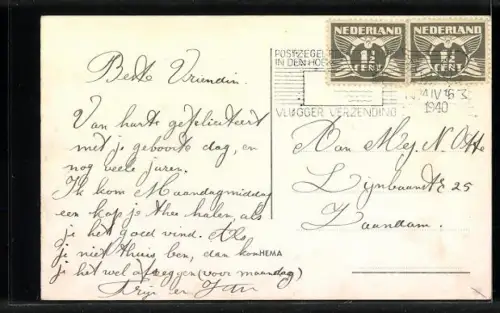 Beste Vriendin.
Van harte gefeliciteert
met je geboorte dag, en
nog veele jaren.
Ik kom Maandagmiddag
een kopje thee halen, als
je het goed vind. Als
je niet thuis ben, dan kon
je het wel afzeggen (voor maandag)
en
HEMA
NEDERLAND
1½
CENT
NEDERLAND
1½
CENT
POSTZEGEL
IN DEN HOEK
VLUGGER VERZENDING
IV 16 3
1940
Aan Mej. N. Otte
Lijnbaanstr 25
Zaandam.